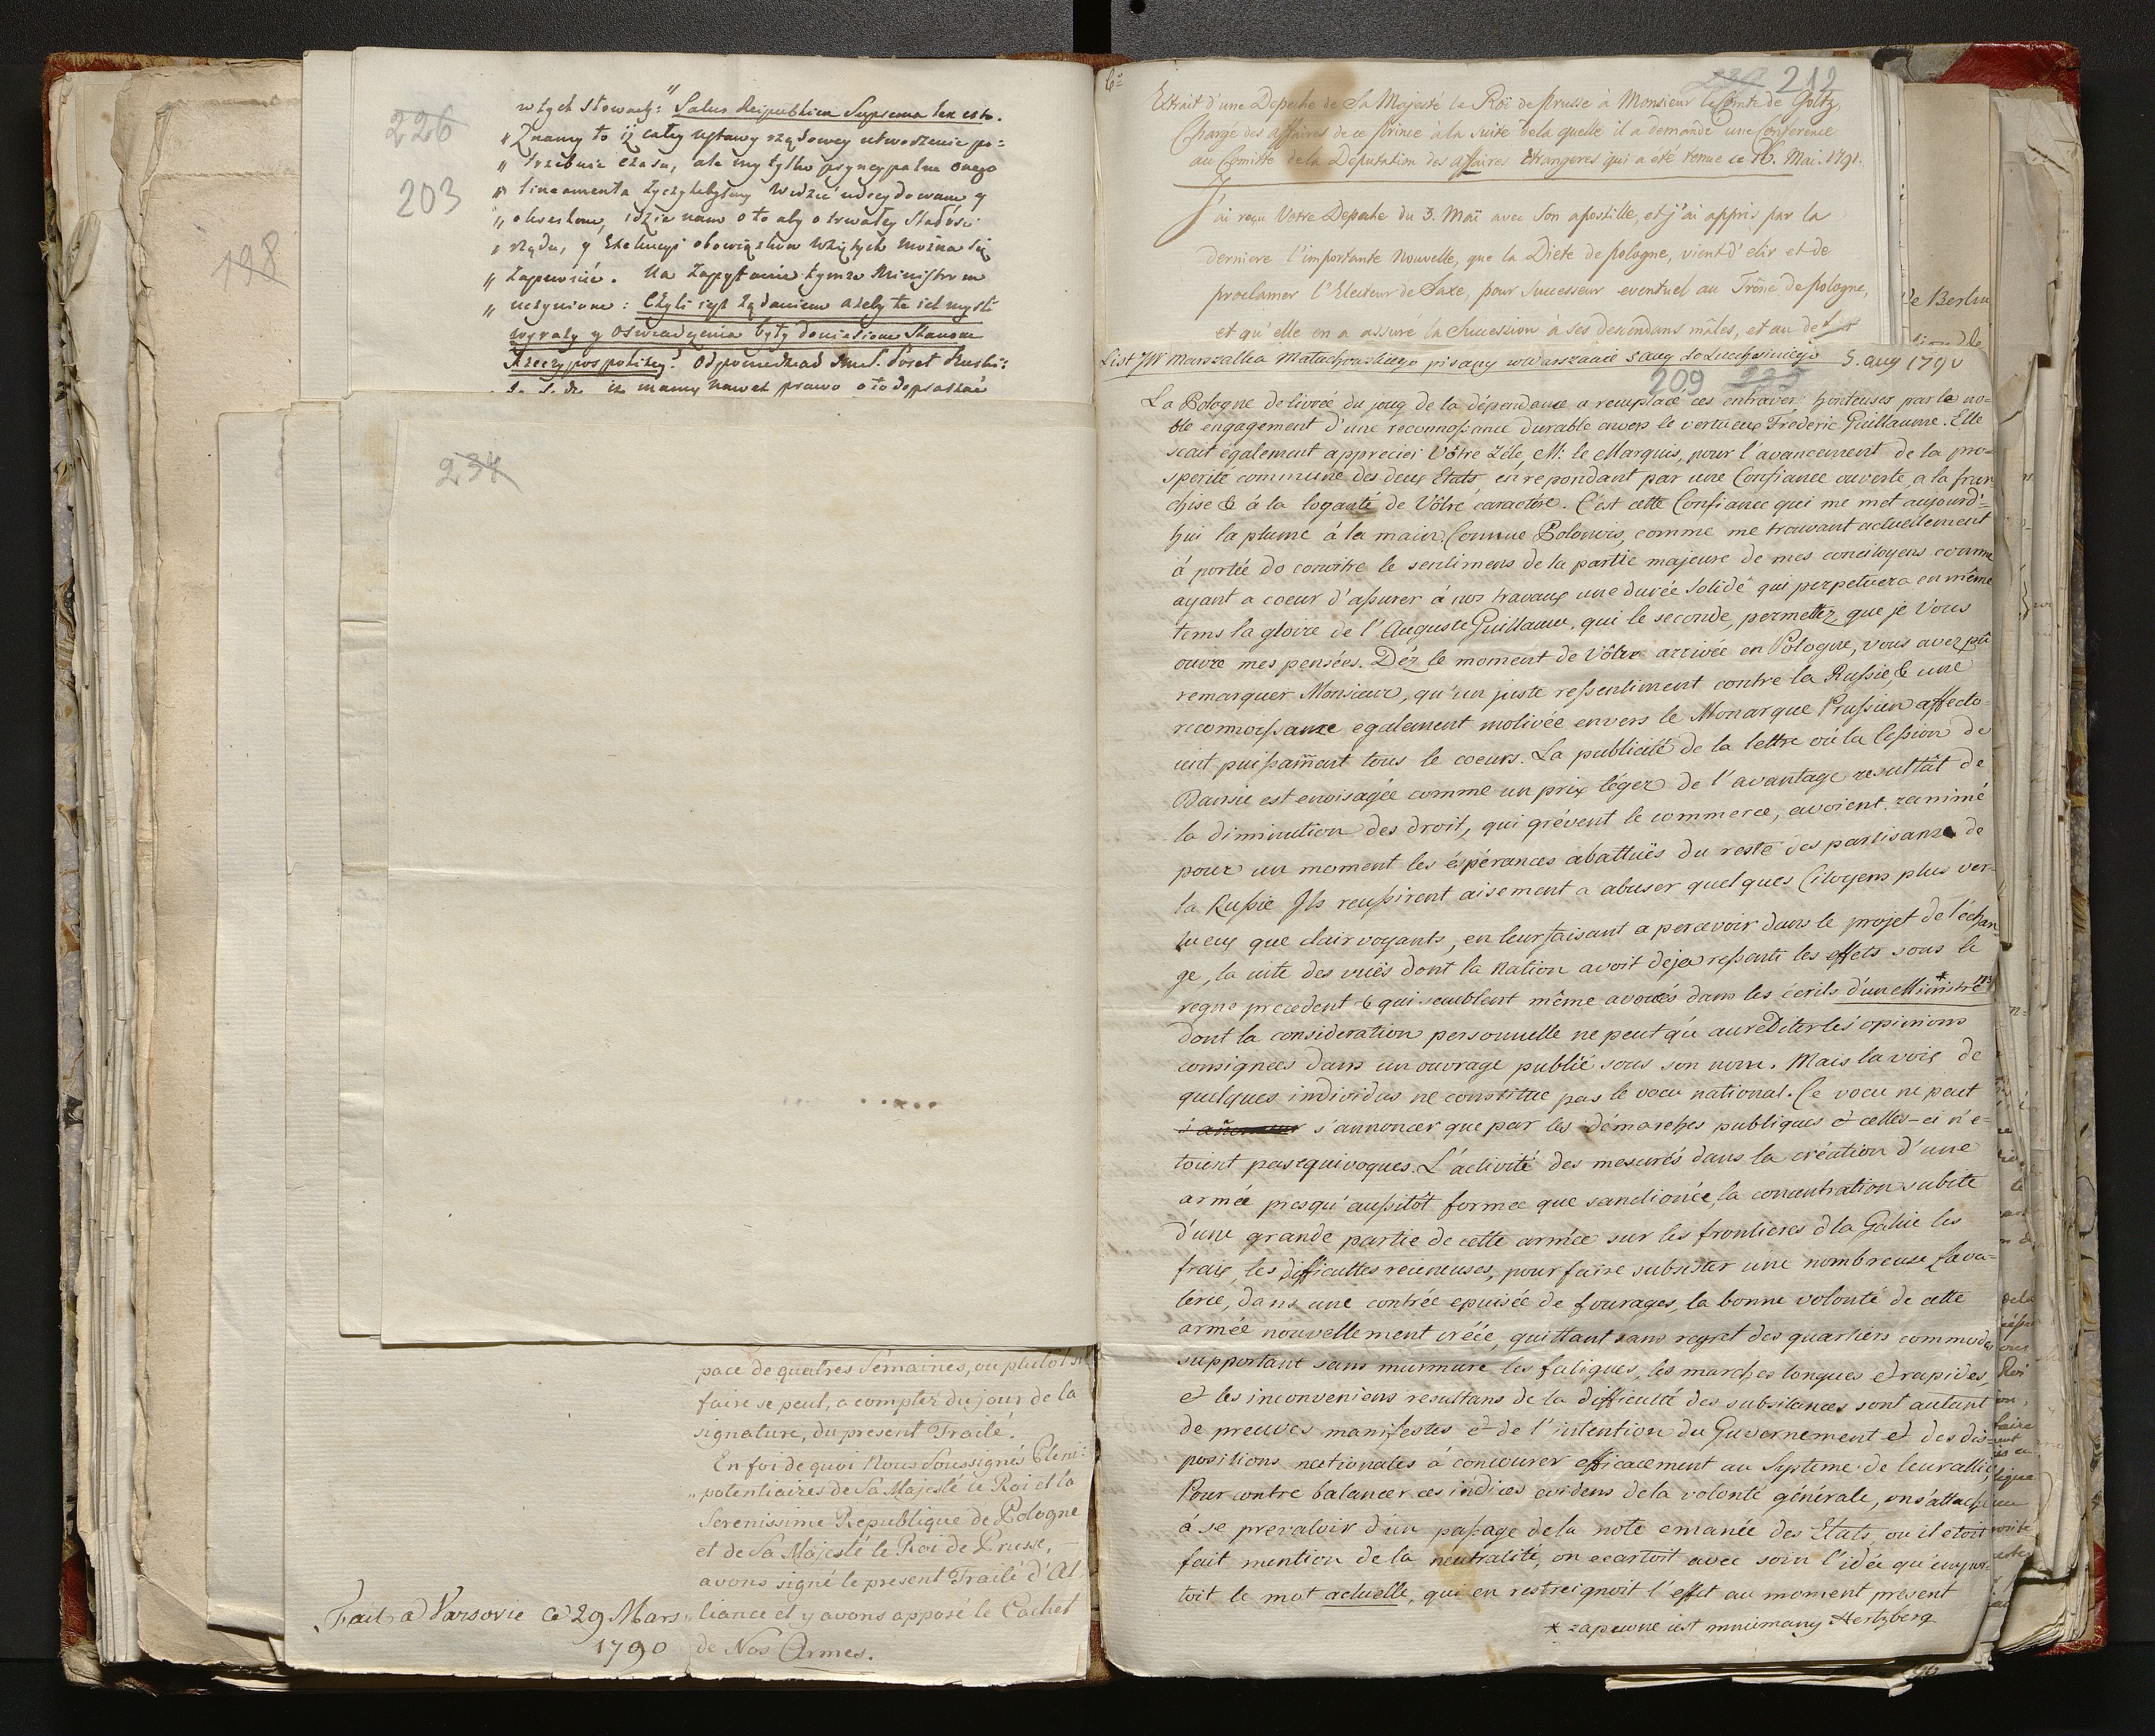 226
203
198
w tych słowach: Salus Reipublicæ Suprema lex esto.
„ Znamy to iż całey ustawy rządowey utworzenie po=
„ trzebuie czasu, ale my tylko pryncypalne onego
„ lineamenta życzylibyśmy widzieć udecydowane y
„ określone, idzie nam o to aby o trwałey Stałości
„ rządu, y Exekucyi obowiązków wziętych można się
„ zapewnić. Na zapytanie tymże Ministrom
„ uczynione: Czyli iest żądaniem ażeby te ich myśli
wyrazy y oświadczenia były doniesione Stanom
Rzeczypospolitey? odpowiedział
iż mamy nawet prawo o to dopraszać
234
pace de quatres Semaines, ou plutôt si
faire se peut, a compter du jour de la
signature, du present Traité.
En foi de quoi Nous Soussignés Pleni=
„potentiaires de Sa Majesté le Roi et la
Serenissime Republique de Pologne
et de Sa Majesté le Roi de Prusse,
avons signé le present Traité d'Al
liance et y avons apposé le Cachet
de Nos Armes.
Fait a Varsovie ce 29 Mars
1790
6º
212
Extrait d'une Depeche de Sa Majesté le Roi de Prusse à Monsieur le Comte de Goltz,
Chargé des affaires de ce Prince à la Suite de la quelle il a demandé une Conference
au Comitté de la Deputation des affaires Etrangeres qui a été tenue ce 16. Mai. 1791.
J'ai reçu Votre Depeche du 3. Maï avec Son apostille, et j'ai appris par la
derniere l'importante Nouvelle, que la Diete de Pologne, vient d'elir et de
proclamer l'Electeur de Saxe, pour Successeur eventuel au Trône de Pologne,
et qu'elle en a assuré la Succession à Ses descendans mâles, et au def
List JW Marszałka Małachowskiego pisany w Warszawie 5 aug do Lucchesiniego 5. aug 1790
209 235
La Pologne delivrée du joug de la dépendance a remplacé ces entraves honteuses par le no=
ble engagement d'une reconnoßance durable envers le vertueux Frederic Guillaume. Elle
scait également apprecier Vôtre Zéle, M: le Marquis, pour l'avancement de la pro=
sperité commune des deux Etats en repondant par une Confiance ouverte a la fran
chise & à la loyauté de Vôtre caractere. C'est cette Confiance qui me met aujourd'=
hui la plume à la main. Comme Polonois, comme me trouvant actuellement
à portée de conoitre le sentimens de la partie majeure de mes concitoyens comme
ayant a coeur d'aßurer à nos travaux une durée solide qui perpetuera en même
tems la gloire de l'Auguste Guillaume, qui le seconde, permettez que je Vous
ouvre mes pensées. Déz le moment de Vôtre arrivée en Pologne, vous avez pû
remarquer Monsieur, qu'un juste reßentiment contre la Rußie, & une
reconnoißance egalement motivée envers le Monarque Prußien affecto=
ient puißam̃ent tous le coeurs. La publicité de la lettre où la Ceßion de
Danzic est envisagée comme un prix léger de l'avantage resultât de
la diminution des droit, qui grévent le commerce, avoient ranimé
pour un moment les éspérances abattuës du reste des partisans de
la Rußie Ils reußirent aisement a abuser quelques Citoyens plus ver=
tueux que clairvoyants, en leur faisant apercevoir dans le projet de l'échan=
ge, la suite des vuës dont la Nation avoit deja reßenti les effets sous le
regne precedent & qui semblent même avoués dans les écrits d'un Ministre *
dont la consideration personnelle ne peut qu'accréditer les opinions
consignées dans un ouvrage publié sous son nom. Mais la voix de
quelques individus ne constitue pas le voeu national. Ce voeu ne peut
s'annoncer que par les démarches publiques & celles-ci n'e=
toient pas equivoques. L'activité des mesures dans la création d'une
armée presqu'außitôt formée que sanctionée, la concentration subite
d'une grande partie de cette armée sur les frontieres d la Galicie les
fraix, les difficultes reuneuses, pour faire subsister une nombreuse Cava=
lerie, dans une contrée epuisée de fourages, la bonne volonté de cette
armée nouvellement créée, quittant sans regret des quartiers commodes
supportant sans murmure les fatigues, les marches longues et rapides
et les inconveniens resultans de la difficulté des subsitances sont autant
de preuves manifestes & de l'intention du Guvernement et des dis=
positions nationales à concourer efficacement au Systeme de leur allié
Pour contre balancer ces indices evidens de la volonté générale, on s'attach
à se prevaloir d'un paßage de la note emanée des Etats, ou il etoit
fait mention de la neutralité, on ecartoit avec soin l'idée qu'empor
toit le mot actuelle, qui en restreignoit l'effet au moment présent
* zapewne iest mniemany Hertzberg
de Berlin
de la
Roi
faire